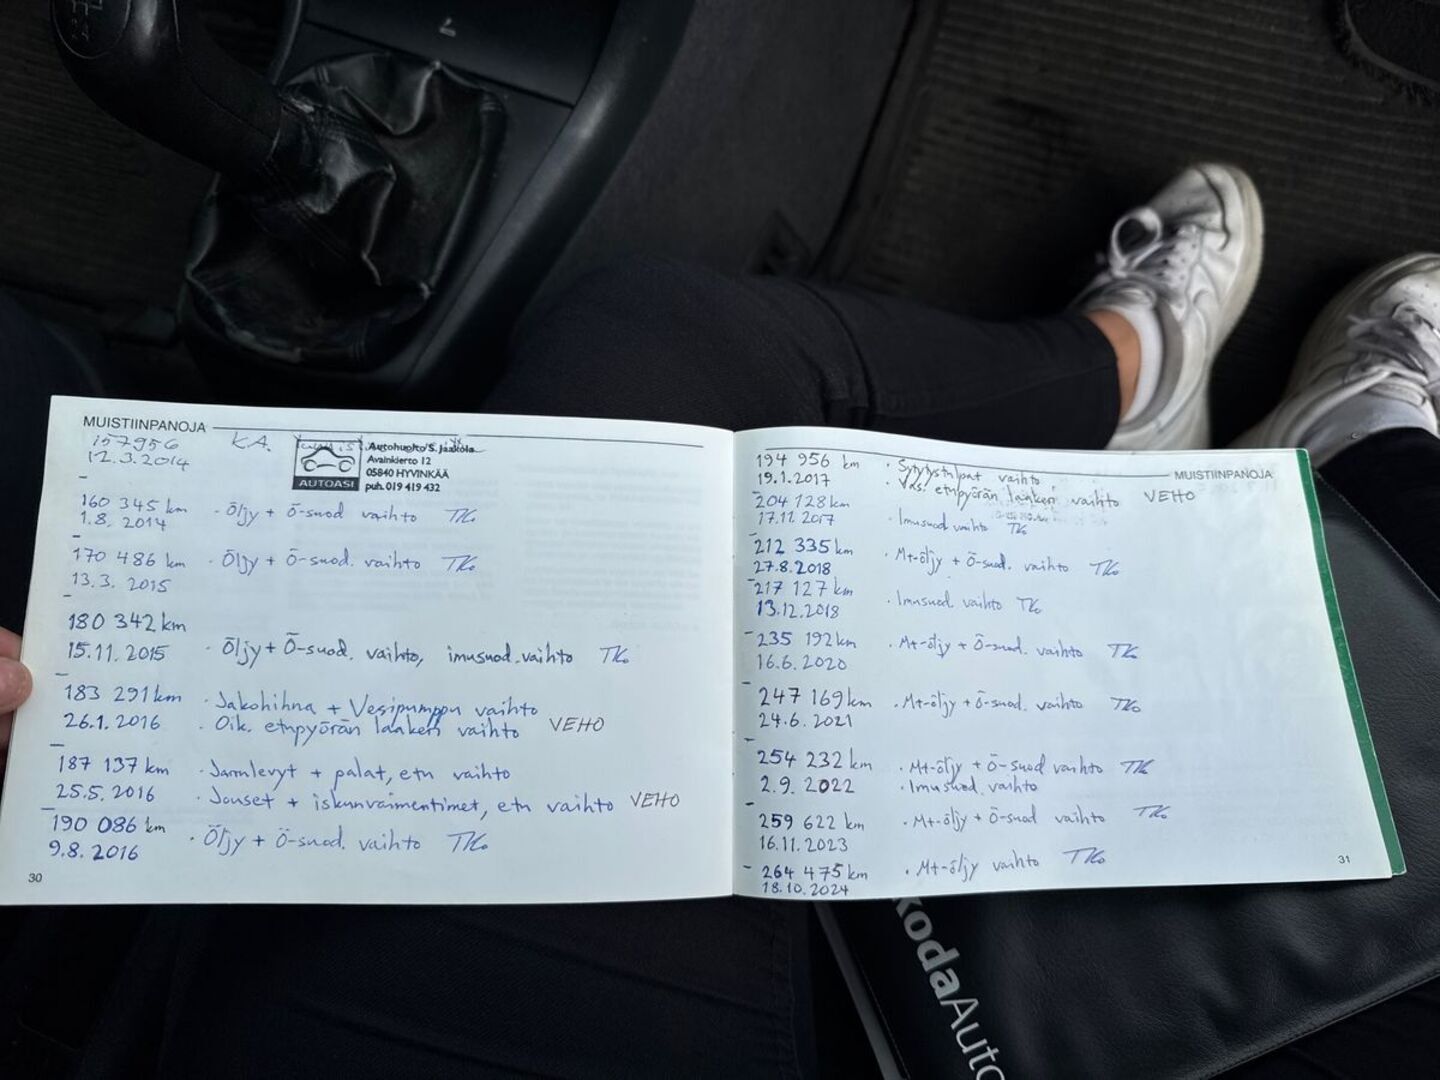 MUISTIINPANOJA
157956 K.A.
12.3.2014
Autohuolto S. Jaakola
Avainkierto 12
05840 HYVINKÄÄ
puh. 019 419 432
AUTOASI
160 345 km
1.8. 2014
· Öljy + Ö-suod vaihto TKo
170 486 km
13.3. 2015
· Öljy + Ö-suod. vaihto TKo
180 342 km
15.11. 2015
· Öljy + Ö-suod. vaihto, imusuod. vaihto TKo
183 291 km
26.1. 2016
· Jakohihna + Vesipumppu vaihto
· Oik. etupyörän laakeri vaihto VEHO
187 137 km
25.5. 2016
· Jarrulevyt + palat, etu vaihto
· Jouset + iskunvaimentimet, etu vaihto VEHO
190 086 km
9.8. 2016
· Öljy + Ö-suod. vaihto TKo
30
MUISTIINPANOJA
194 956 km
19.1. 2017
· Sytytystulpat vaihto
· Vas. etupyörän laakeri vaihto VEHO
204 128 km
17.11. 2017
· Imusuod vaihto TKo
212 335 km
27.8. 2018
· Mt-öljy + Ö-suod. vaihto TKo
217 127 km
13.12. 2018
· Imusuod. vaihto TKo
235 192 km
16.6. 2020
· Mt-öljy + Ö-suod. vaihto TKo
247 169 km
24.6. 2021
· Mt-öljy + Ö-suod. vaihto TKo
254 232 km
2.9. 2022
· Mt-öljy + Ö-suod vaihto TKo
· Imusuod. vaihto
259 622 km
16.11. 2023
· Mt-öljy + Ö-suod vaihto TKo
264 475 km
18.10. 2024
· Mt-öljy vaihto TKo
31
kodaAuto